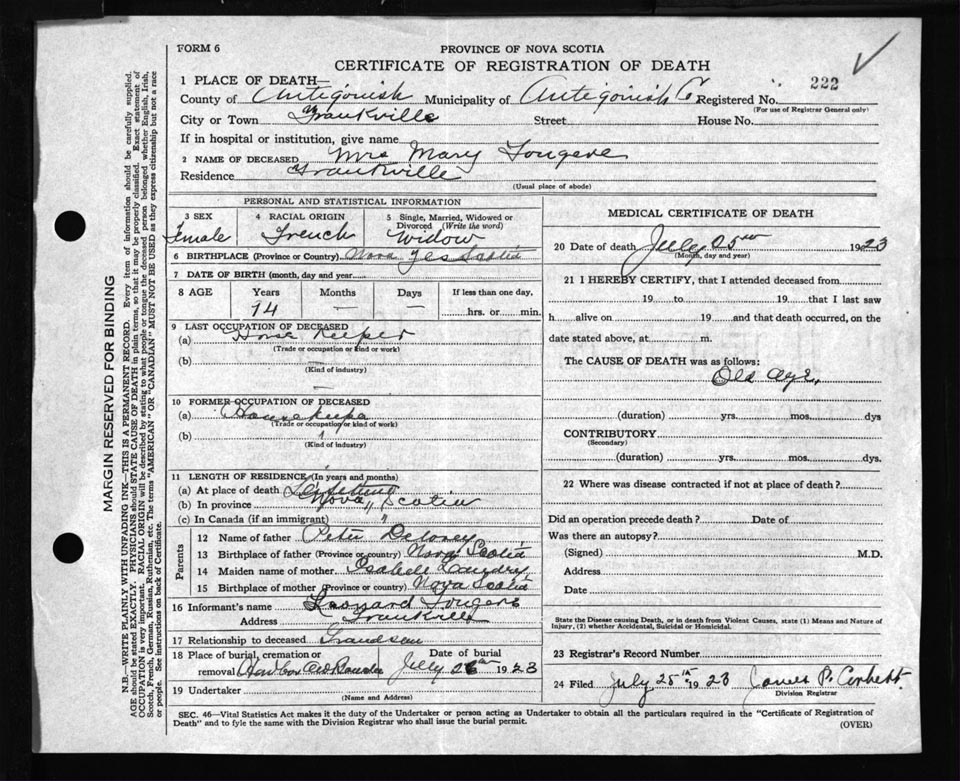 FORM 6
PROVINCE OF NOVA SCOTIA
CERTIFICATE OF REGISTRATION OF DEATH
222
1 PLACE OF DEATH—
County of Antigonish Municipality of Antigonish Co Registered No.
(For use of Registrar General only)
City or Town Frankville Street House No.
If in hospital or institution, give name
2 NAME OF DECEASED Mrs Mary Fougere
Residence Frankville
(Usual place of abode)
PERSONAL AND STATISTICAL INFORMATION
3 SEX Female
4 RACIAL ORIGIN French
5 Single, Married, Widowed or Divorced (Write the word) Widow
6 BIRTHPLACE (Province or Country) Nova Scotia
7 DATE OF BIRTH (month, day and year)
8 AGE Years Months Days If less than one day,
94 — — hrs. or min.
9 LAST OCCUPATION OF DECEASED
(a) House Keeper
(Trade or occupation or kind of work)
(b) —
(Kind of industry)
10 FORMER OCCUPATION OF DECEASED
(a) Housekeepe
(Trade or occupation or kind of work)
(b)
(Kind of industry)
11 LENGTH OF RESIDENCE (in years and months)
(a) At place of death
(b) In province Nova Scotia
(c) In Canada (if an immigrant) "
Parents
12 Name of father Peter Deloney
13 Birthplace of father (Province or country) Nova Scotia
14 Maiden name of mother Isabell Landry
15 Birthplace of mother (Province or country) Nova Scotia
16 Informant's name Leonard Fougere
Address Frankville
17 Relationship to deceased Grandson
18 Place of burial, cremation or Date of burial
removal July 26 1923
19 Undertaker
(Name and Address)
MEDICAL CERTIFICATE OF DEATH
20 Date of death July 25 1923
(Month, day and year)
21 I HEREBY CERTIFY, that I attended deceased from
19 to 19 that I last saw
h alive on 19 and that death occurred, on the
date stated above, at m.
The CAUSE OF DEATH was as follows:
Old Age,
(duration) yrs. mos. dys
CONTRIBUTORY
(Secondary)
(duration) yrs. mos. dys
22 Where was disease contracted if not at place of death?
Did an operation precede death? Date of
Was there an autopsy?
(Signed) M.D.
Address
Date
State the Disease causing Death, or in death from Violent Causes, state (1) Means and Nature of
Injury, (2) whether Accidental, Suicidal or Homicidal.
23 Registrar's Record Number
24 Filed July 25th 1923 James P. Corbett
Division Registrar
SEC. 46—Vital Statistics Act makes it the duty of the Undertaker or person acting as Undertaker to obtain all the particulars required in the "Certificate of Registration of
Death" and to fyle the same with the Division Registrar who shall issue the burial permit.
(OVER)
MARGIN RESERVED FOR BINDING
N.B.—WRITE PLAINLY WITH UNFADING INK—THIS IS A PERMANENT RECORD. Every item of information should be carefully supplied.
AGE should be stated EXACTLY. PHYSICIANS should STATE CAUSE OF DEATH in plain terms, so that it may be properly classified. Exact statement of
OCCUPATION is very important. RACIAL ORIGIN will be described by stating to what people or tongue the deceased person belonged whether English, Irish,
Scotch, French, German, Russian, Ruthenian, etc. The terms "AMERICAN" OR "CANADIAN" MUST NOT BE USED as they express citizenship but not a race
or people. See instructions on back of Certificate.